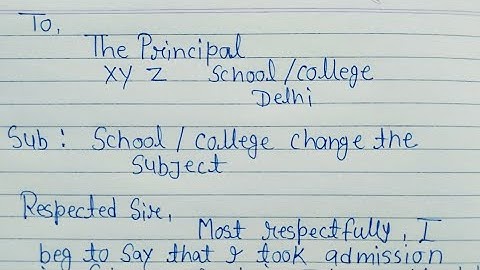 To,
The Principal
XY Z School/college
Delhi
Sub : School / college change the
Subject
Respected Sir,
Most respectfully, I
beg to say that I took admission